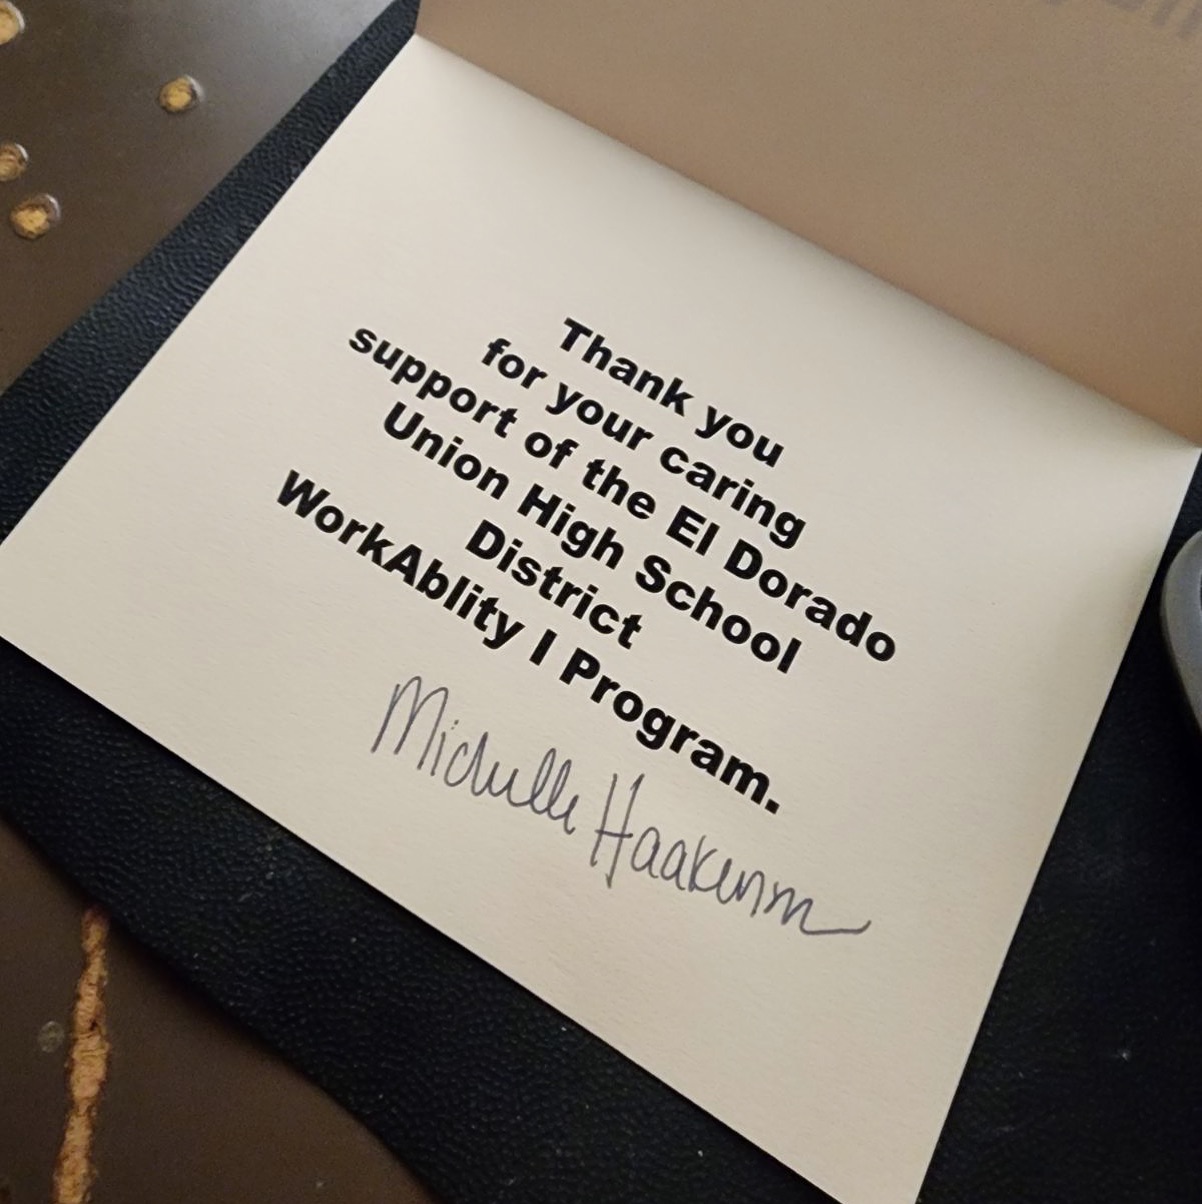 Thank you
for your caring
support of the El Dorado
Union High School
District
WorkAblity I Program.
Michelle Haakenson